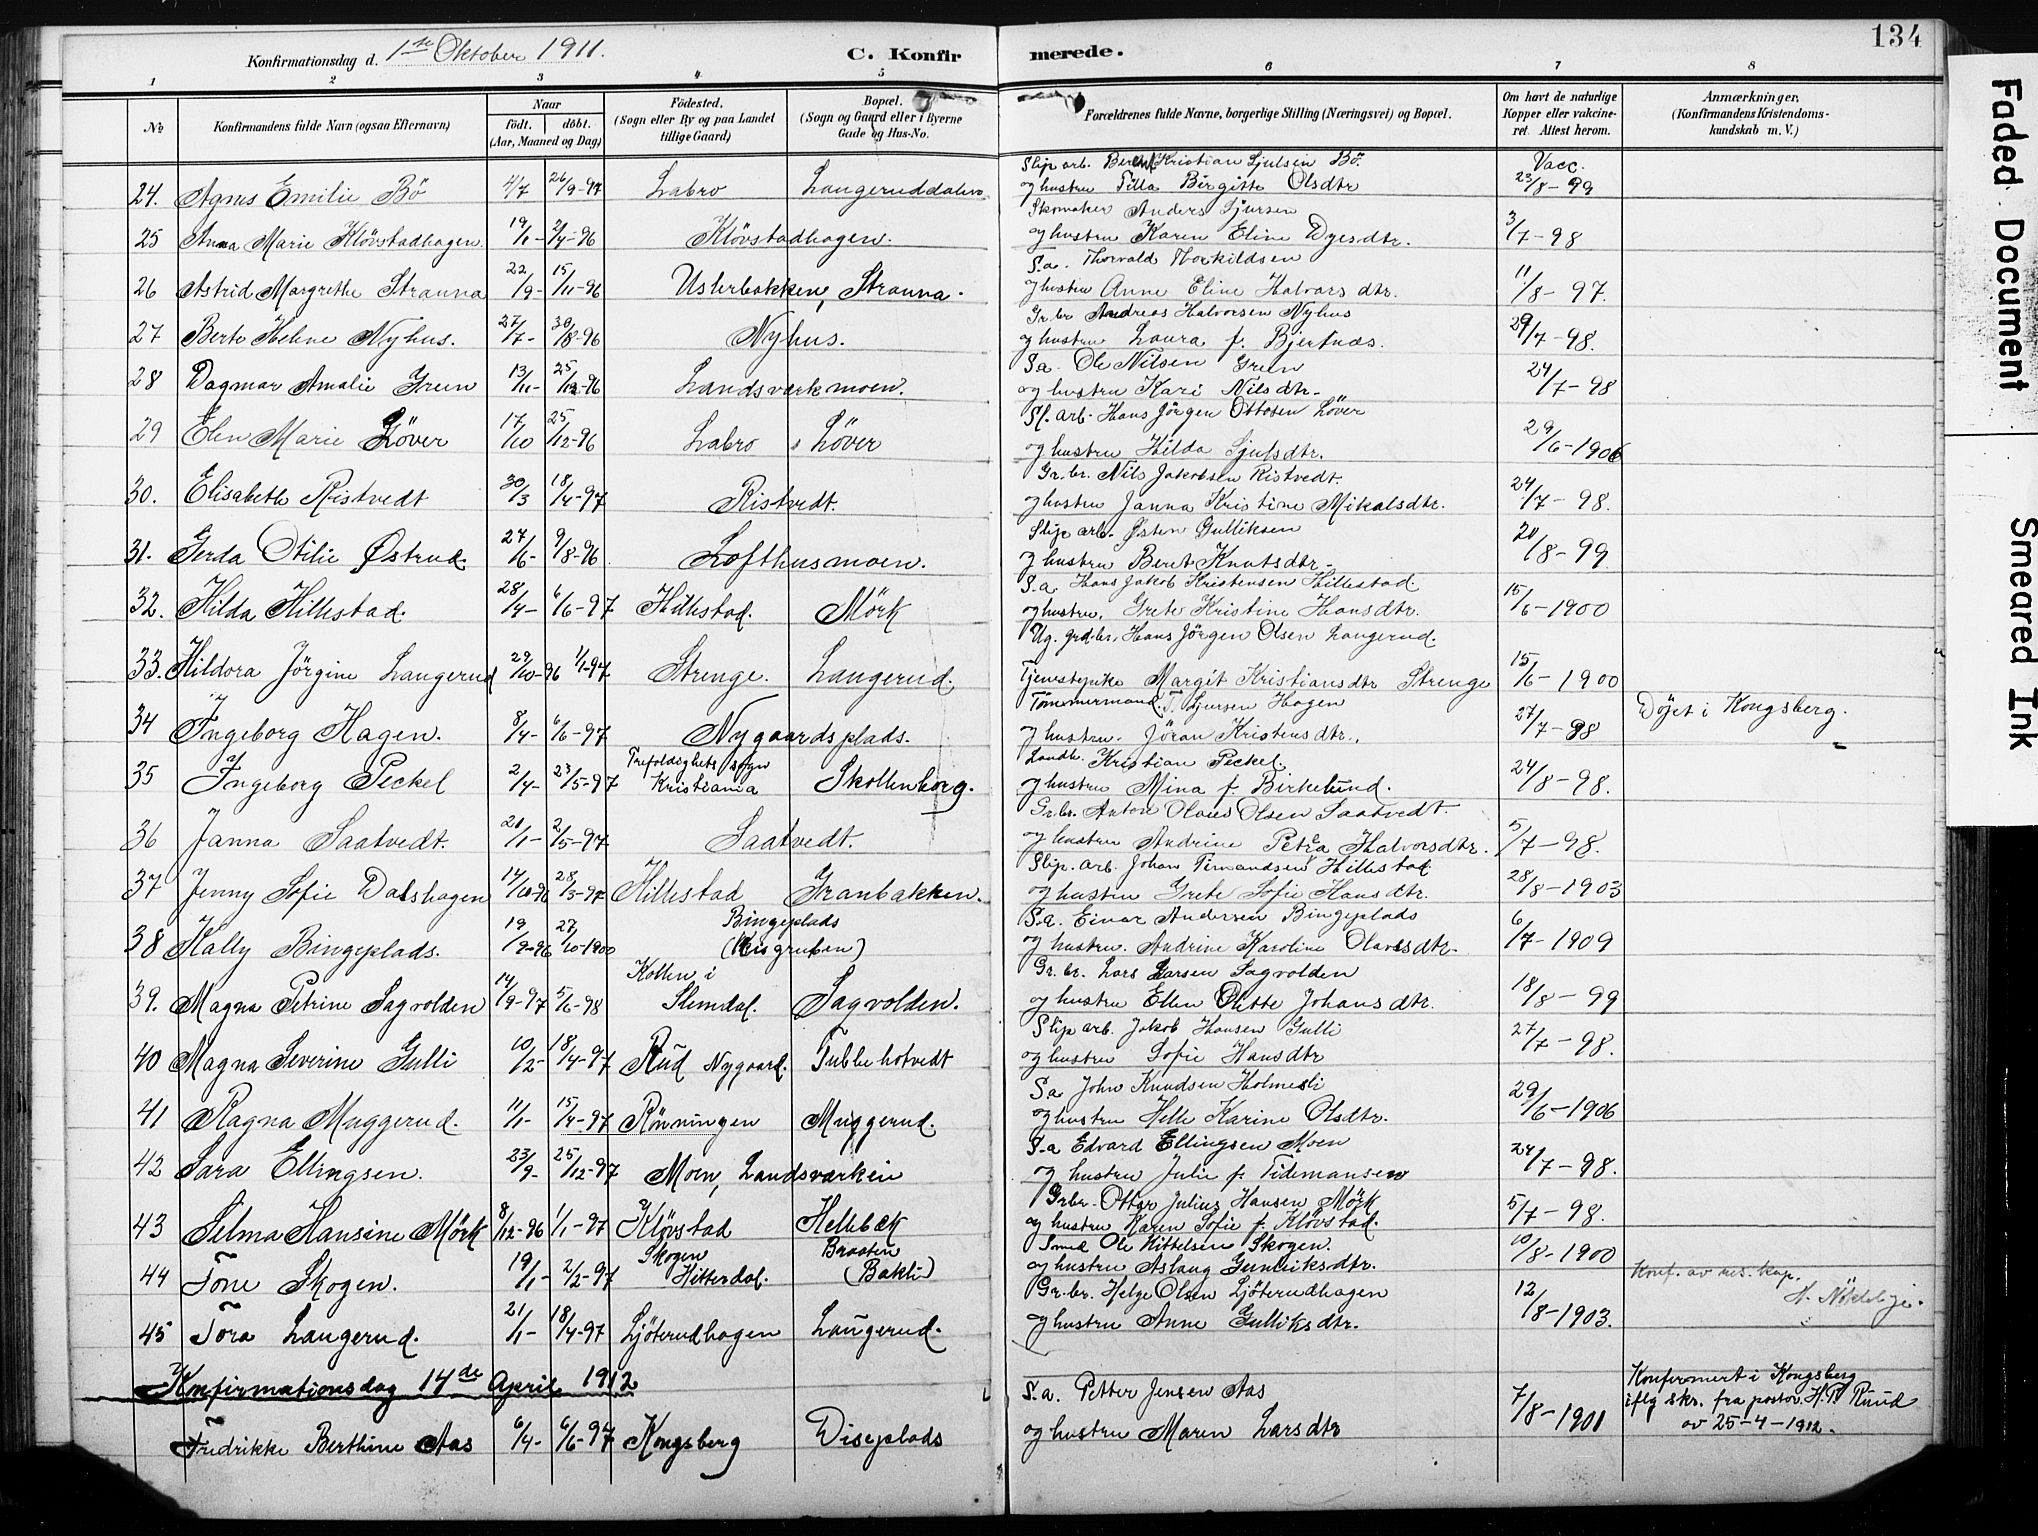 134
Konfirmationsdag d. 1ste Oktober 1911.
C. Konfirmerede.
1 2 3 4 5 6 7 8
No.
Konfirmandens fulde Navn (ogsaa Efternavn)
Naar
født. døbt.
(Aar, Maaned og Dag)
Fødested.
(Sogn eller By og paa Landet
tillige Gaard)
Bopæl.
(Sogn og Gaard eller i Byerne
Gade og Hus-No.
Forældrenes fulde Navne, borgerlige Stilling (Næringsvei) og Bopæl.
Om havt de naturlige
Kopper eller vakcine-
ret. Attest herom.
Anmærkninger.
(Konfirmandens Kristendoms-
kundskab m. V.)
Slip arb. Kristian Sjulsen Bö.
Vacc.
24. Agnes Emilie Bö 4/7 26/9-97 Labro Langeruddalen
og hustru Tilla Birgitte Olsdtr 23/8-99
Skomaker Anders Sjursen
25 Anna Marie Klövstadhagen. 19/1- 2/4-96 Klövstadhagen.
og hustru Karen Eline Dyesdtr. 3/7-98
S.a. Thorvald Torkildsen
26 Astrid Margrethe Stranna 22/9- 15/11-96 Uslerbakken, Stranna.
og hustru Anne Eline Halvorsdtr. 11/8-97.
Gr. br Andreas Halvorsen Nyhus
27 Berte Helene Nyhus. 27/7- 30/8-96 Nyhus.
og hustru Laura f. Bjertnæs. 29/7-98.
S.a. Ole Nilsen Green
28 Dagmar Amalie Green 13/11- 25/12-96 Landsværkmoen.
og hustru Kari Nilsdtr. 24/7-98
Sl. arb. Hans Jörgen Ottosen Löver
29 Elen Marie Löver 17/10 25/12-96 Labro Löver
og hustru Hilda Sjulsdtr. 29/6-1906
Gr. br. Nils Jakobsen Ristvedt.
30. Elisabeth Ristvedt 30/3 18/4-97 Ristvedt.
og hustru Janna Kristine Mikalsdtr. 24/7-98.
Slip arb. Østen Gulliksen
31. Gerda Otilie Østrud 27/6- 9/8-96 Lofthusmoen.
og hustru Beret Knutsdtr. 20/8-99
S.a. Hans Jakob Kristensen Hillestad
32. Hilda Hillestad. 28/4- 6/6-97 Hillestad. Mörk
og hustru. Grete Kristine Hansdtr. 15/6-1900
Ug. grd.br. Hans Jörgen Olsen Langerud.
33. Hildora Jörgine Langerud 29/10-96 1/1-97 Strenge. Langerud.
Tjenestepike Margit Kristiansdtr Strenge 15/6-1900
Tömmermand. T. Sjursen Hagen
34 Ingeborg Hagen. 8/4- 6/6-97 Nygaardsplads.
og hustru. Jöran Kristensdtr. 27/7-98
Döjet i Kongsberg.
Landh. Kristian Peckel.
35 Ingeborg Peckel 2/4- 23/5-97 Trefoldighets sogn
Kristiania
Skollenborg.
og hustru Mina f. Birkelund. 24/8-98.
Gr. br. Anton Olaus Olsen Saatvedt.
36 Janna Saatvedt. 21/1- 2/5-97 Saatvedt.
og hustru Andrine Petra Halvorsdtr. 5/7-98.
Slip. arb. Johan Hillestad
37 Jenny Sofie Dalshagen 14/10-96 28/3-97 Hillestad Granbakken.
og hustru Grete Sofie Hansdtr. 28/8-1903
S.a. Einar Andersen Bingeplads
38 Kally Bingeplads. 19/9-96 27/10-1900 Bingeplads
(Kisgruben)
og hustru. Andrine Karoline Olavesdtr. 6/7-1909
Gr. br. Lars Larsen Sagvolden
39. Magna Petrine Sagvolden 14/9-97 5/6-98 Kollen i
Slemdal. Sagvolden.
og hustru Ellen Olette Johansdtr. 18/8-99
Slip arb. Jakob Hansen Gulli
40 Magna Severine Gulli 10/2- 18/4-97 Rud Nygaard. Tubbehotvedt
og hustru Sofie Hansdtr 27/7-98.
S.a John Knudsen Holmesli
41 Ragna Muggerud. 11/1- 15/4-97 Rönningen Muggerud.
og hustru Helle Karine Olsdtr. 29/6-1906
S.a Edvard Ellingsen Moen
42 Sara Ellingsen. 23/9- 25/12-97 Moen, Landsværkein
og hustru Julie f. Tidemansen 24/7-98.
Grbr. Otter Julius Hansen Mörk
43 Selma Hansine Mörk 8/12-96 1/1-97 Klövstad Hellebæk
og hustru Karen Sofie f. Klövstad. 5/7-98.
Smed Ole Kittelsen Skogen.
44 Tone Skogen. 19/1- 2/2-97 Skogen
Hitterdal.
Braaten
(Bakli)
og hustru Aslaug Gunleiksdtr. 10/8-1900
Konf. av res. kap.
N. Nökleby.
Gr. br. Helge Olsen Ljöterudhagen
45 Tora Langerud. 21/1- 18/4-97 Ljöterudhagen Langerud.
og hustru Anne Gulliksdtr. 12/8-1903.
Konfirmationsdag 14de April 1912
S.a. Petter Jensen Aas
Fredrikke Berthine Aas 6/4- 6/6-97 Kongsberg Diseplads
og hustru Maren Larsdtr 7/8-1901
Konfirmert i Kongsberg
iflg skr. fra pastor H. P. Ruud
av 25-4-1912.
Faded Document
Smeared Ink